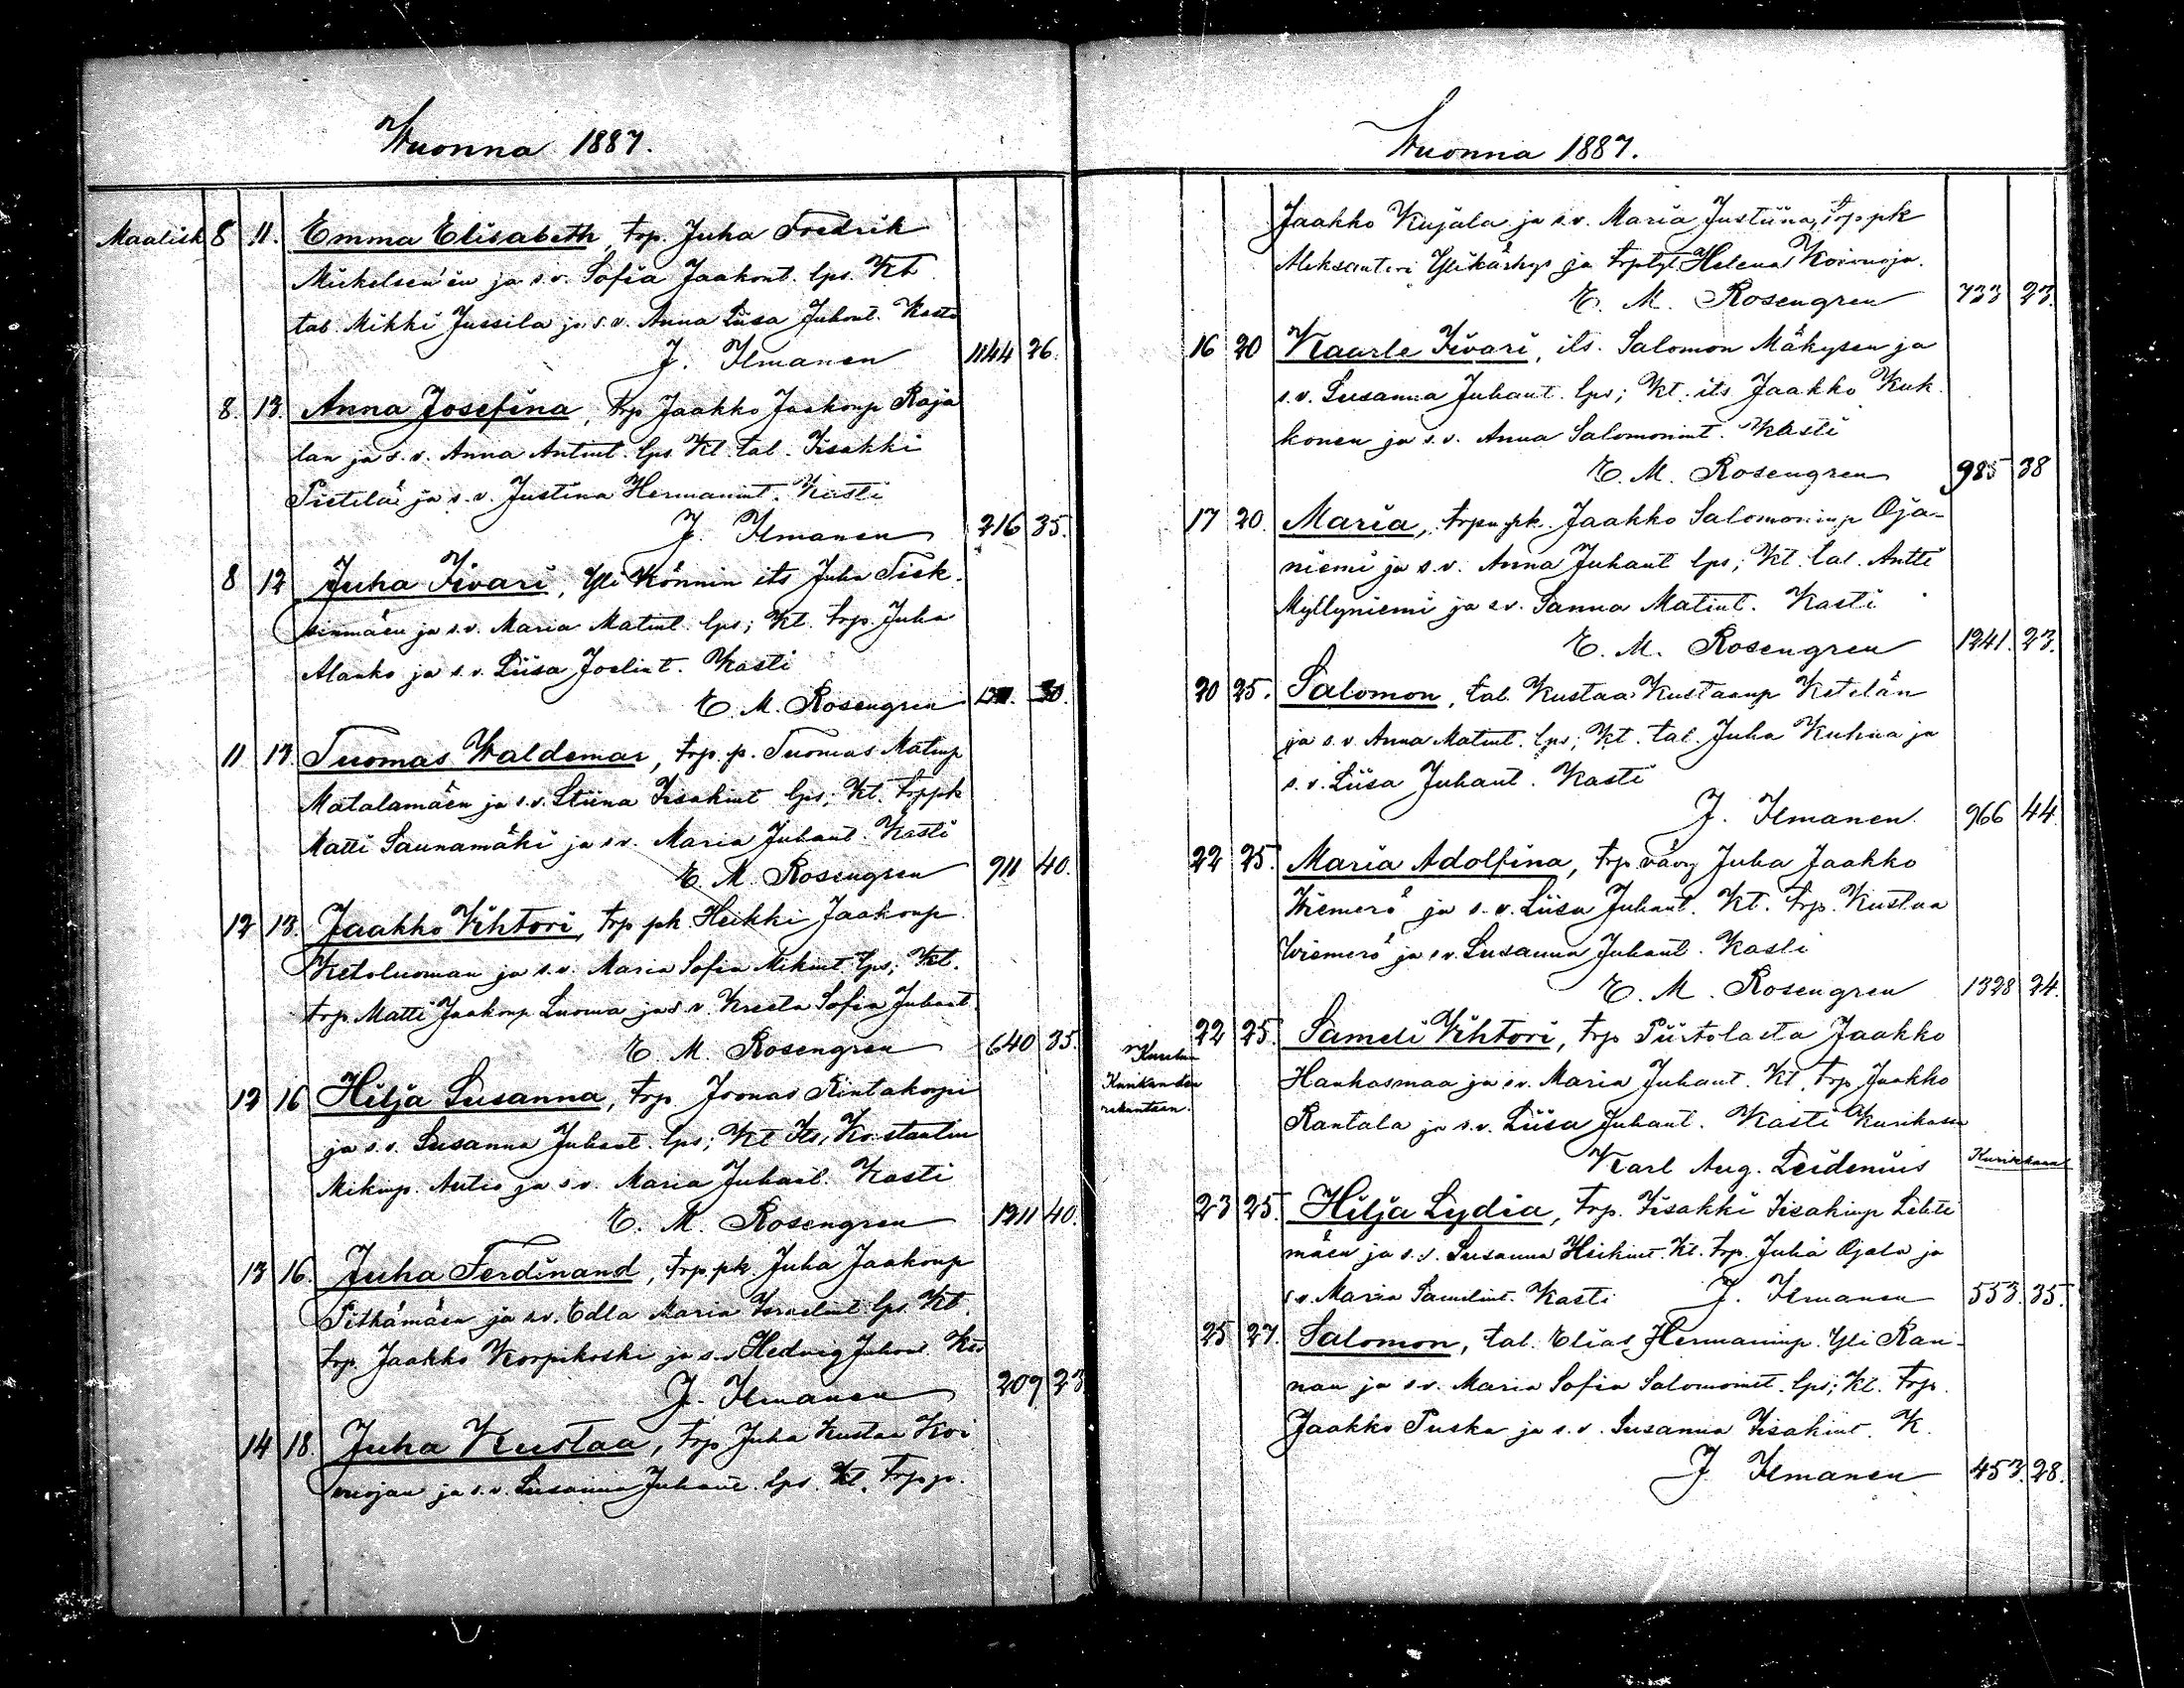 Wuonna 1887.
Maalisk 8 11. Emma Elisabeth, trp. Juha Fredrik
Mickelsen'in ja s.v. Sofia Jaakont. lps. Kt
tal. Mikki Jussila ja s.v. Anna Liisa Juhont. Kasti
J. Ilmanen 1144 26.
8. 13. Anna Josefina, trp Jaakko Jaakonp Raja
lan ja s.v. Anna Antint. lps. Kt. tal. Iisakki
Pietilä ja s.v. Justina Hermannint. Kasti
J. Ilmanen 216 35.
8 12 Juha Iivari, Yli Könnin its Juha Tick
sinmäen ja s.v. Maria Matint. lps; Kt. trp. Juha
Alanko ja s.v. Liisa Joelint. Kasti
E. M. Rosengren 30.
11 13 Tuomas Waldemar, trp. p. Tuomas Matinp
Matalamäen ja s.v. Stiina Iisakint lps; Kt. trppk
Matti Saunamäki ja s.v. Maria Juhant. Kasti
E. M. Rosengren 911 40.
12 13. Jaakko Vihtori, trp pk. Heikki Jaakonp
Ketoluoman ja s.v. Maria Sofia Mikint. lps; Kt.
trp. Matti Jaakonp Luoma ja s.v. Kreeta Sofia Juhant.
E. M. Rosengren 640 35.
12 16 Hilja Susanna, trp. Joonas Rintakorpi
ja s.v. Susanna Juhant. lps; Kt Its, Konstantin
Mikinp. Autio ja s.v. Maria Juhant. Kasti
E. M. Rosengren 1211 40.
13 16. Juha Ferdinand, trp.pk. Juha Jaakonp
Pitkämäen ja s.v. Edla Maria Israelint. lps. Kt.
trp. Jaakko Korpikoski ja s.v. Hedvig Juhont.
J. Ilmanen 209 23
14 18. Juha Kustaa, trp Juha Kustaa Koi
vuojan ja s.v. Susanna Juhant. lps. Kt. trp p.
Wuonna 1887.
Jaakko Kujala ja s.v. Maria Justiina, trp pk
Aleksanteri Ylikärhys ja trptyt Helena Koivuoja.
E. M. Rosengren 733 23.
16 20 Kaarle Iivari, its. Salomon Mäkysen ja
s.v. Susanna Juhant. lps; Kt. its Jaakko Kuk
konen ja s.v. Anna Salomonint. Kasti
E. M. Rosengren 985 38
17 20. Maria, trpn pk. Jaakko Salomoninp Oja-
niemi ja s.v. Anna Juhant lps; Kt. tal. Antti
Myllyniemi ja s.v. Sanna Matint. Kasti
E. M. Rosengren 1241. 23.
20 25. Salomon, tal. Kustaa Kustaanp Ketelän
ja s.v. Anna Matint. lps; Kt. tal. Juha Kuhna ja
s.v. Liisa Juhant. Kasti
J. Ilmanen. 966 44.
22 25. Maria Adolfina, trp. vävy Juha Jaakko
Wiemerö ja s.v. Liisa Juhant. Kt. trp. Kustaa
Wiemerö ja s.v. Susanna Juhant. Kasti
E. M. Rosengren 1328 24.
22 25. Sameli Vihtori, trp Jaakko
Hankasmaa ja s.v. Maria Juhant. Kt. trp. Jaakko
Rantala ja s.v. Liisa Juhant. Kasti Kurikassa
Karl Aug. Leidenius
23 25. Hilja Lydia, trp. Iisakki Iisakinp Lehti
mäen ja s.v. Susanna Heikint. Kt. trp. Juha Ojala ja
s.v. Maria Samelint. Kasti J. Ilmanen 553. 35.
25 27. Salomon, tal. Elias Hermanninp. Yli Ran-
nan ja s.v. Maria Sofia Salomonint. lps; Kt. trp.
Jaakko Puska ja s.v. Susanna Iisakint. K.
J Ilmanen 453. 28.